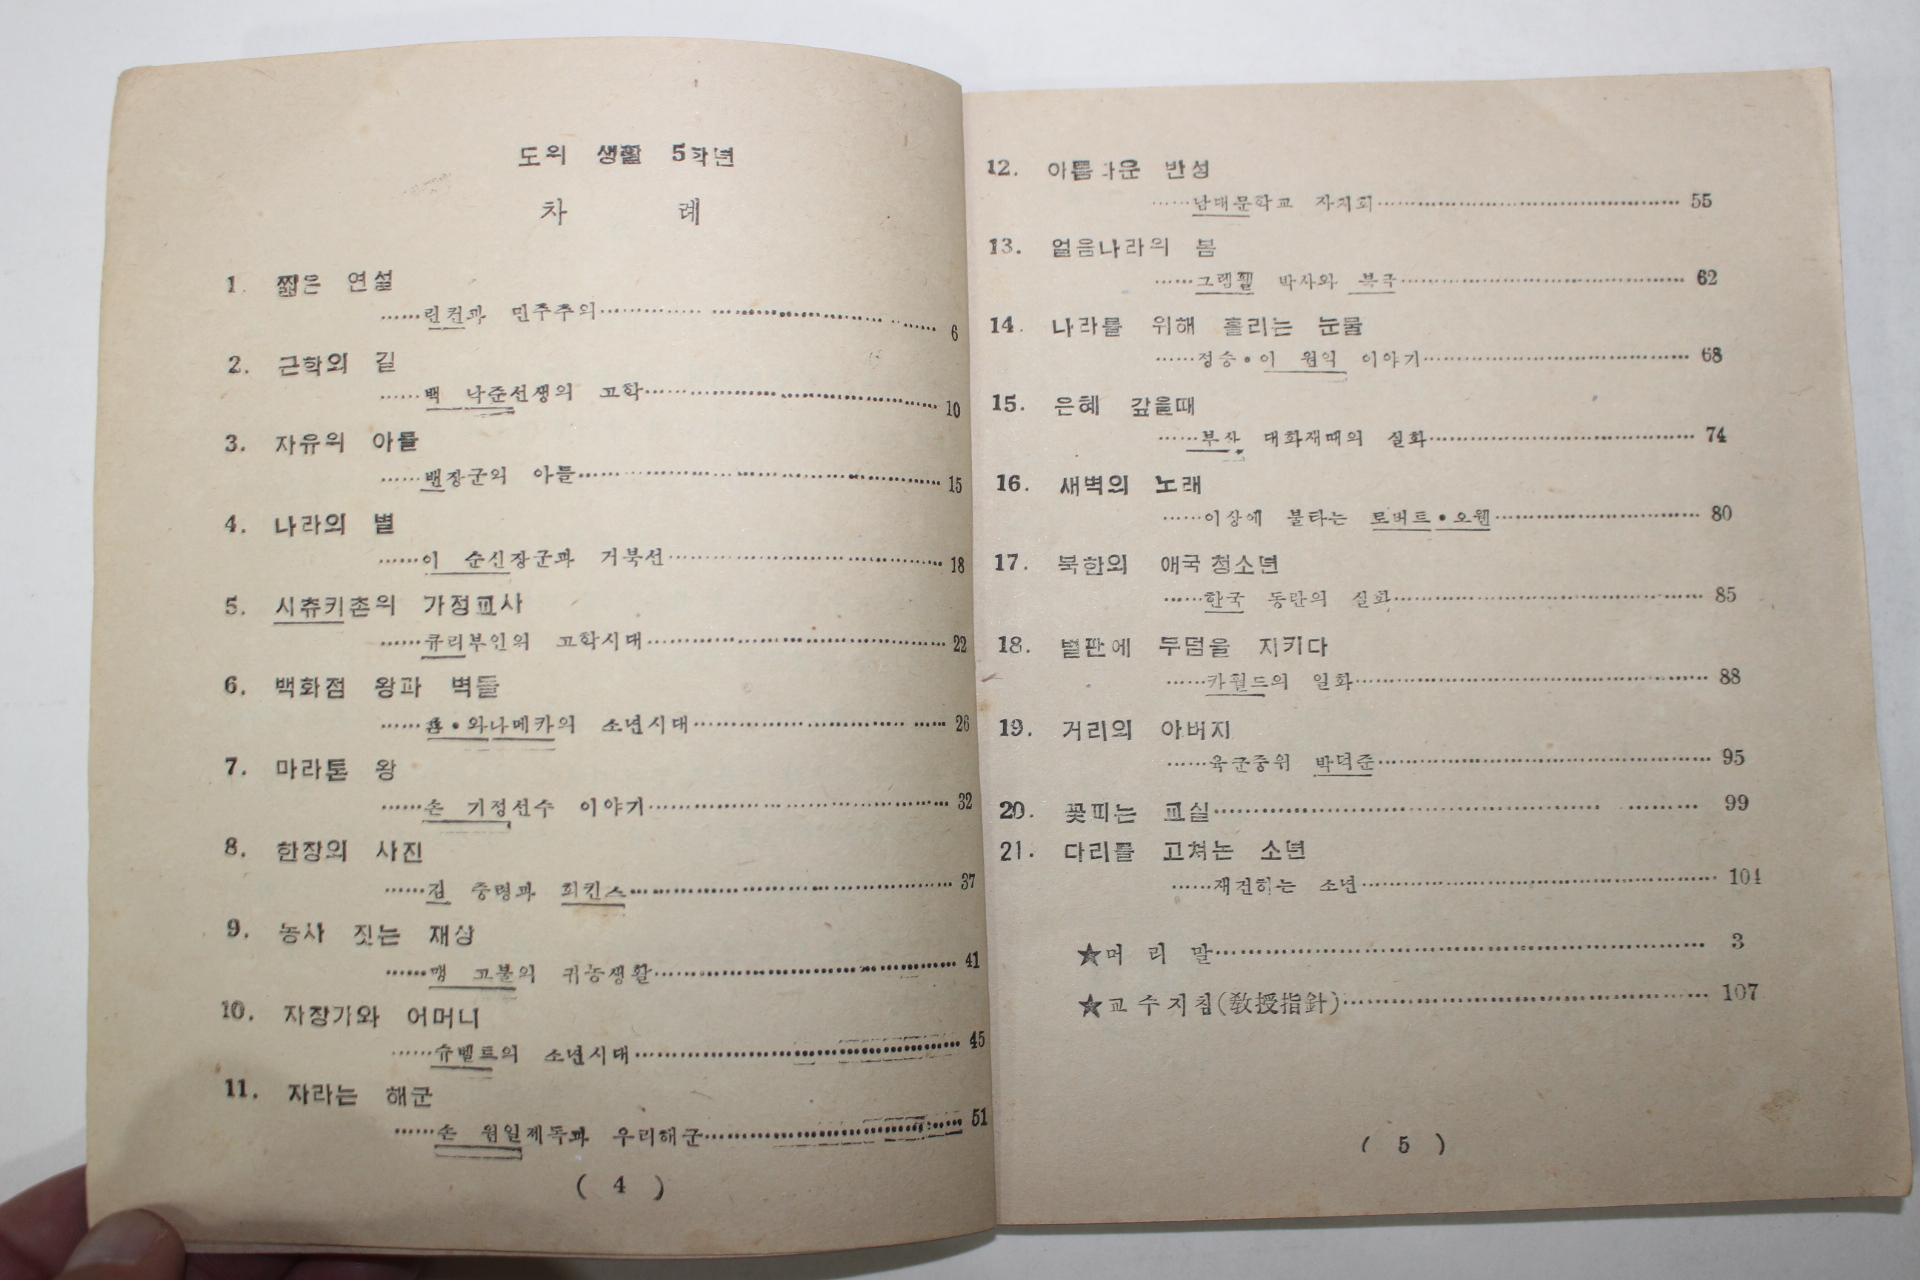 도의 생활 5학년
차 례
1. 짧은 연설
……린컨과 민주주의…………………… 6
2. 근학의 길
……백 낙준선생의 고학…………………… 10
3. 자유의 아들
……밴장군의 아들…………………… 15
4. 나라의 별
……이 순신장군과 거북선…………………… 18
5. 시츄키촌의 가정교사
……큐리부인의 고학시대…………………… 22
6. 백화점 왕과 벽돌
……죤•와나메카의 소년시대…………………… 26
7. 마라톤 왕
……손 기정선수 이야기…………………… 32
8. 한장의 사진
……김 중령과 희킨스…………………… 37
9. 농사 짓는 재상
……맹 고불의 귀농생활…………………… 41
10. 자장가와 어머니
……슈벨트의 소년시대…………………… 45
11. 자라는 해군
……손 원일제독과 우리해군…………………… 51
( 4 )
12. 아름다운 반성
……남대문학교 자치회…………………… 55
13. 얼음나라의 봄
……그렌펠 박사와 북극…………………… 62
14. 나라를 위해 흘리는 눈물
……정승•이 원익 이야기…………………… 68
15. 은혜 갚을때
……부산 대화재때의 실화…………………… 74
16. 새벽의 노래
……이상에 불타는 로버트•오웬…………………… 80
17. 북한의 애국 청소년
……한국 동란의 실화…………………… 85
18. 벌판에 무덤을 지키다
……카월드의 일화…………………… 88
19. 거리의 아버지
……육군중위 박덕준…………………… 95
20. 꽃피는 교실…………………… 99
21. 다리를 고쳐논 소년
……재건하는 소년…………………… 104
★머 리 말…………………… 3
★교 수 지 침(敎授指針)…………………… 107
( 5 )